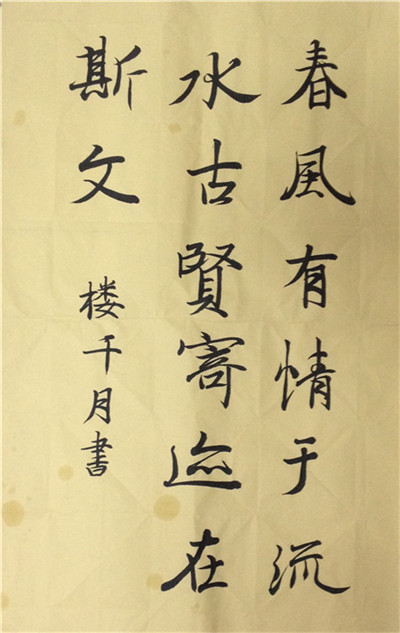 春風有情于流
水古賢寄迹在
斯文
楼千月書